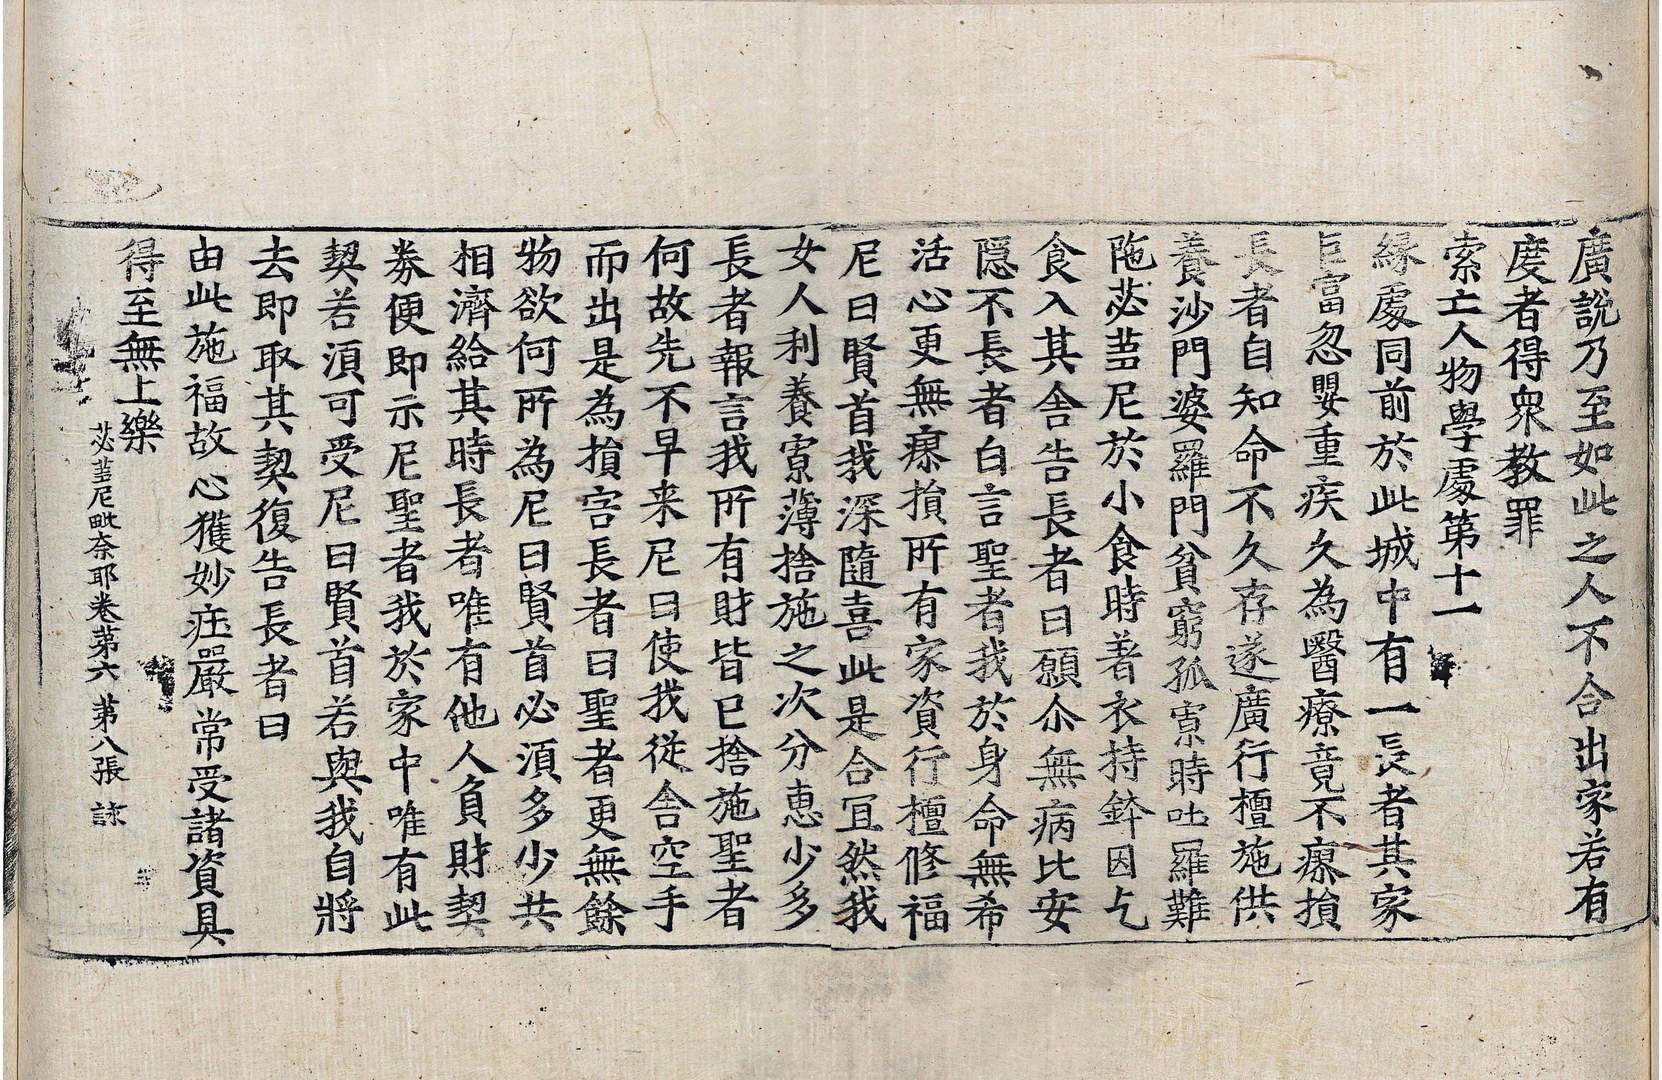 廣說乃至如此之人不合出家若有
度者得衆教罪
索亡人物學處第十一
緣處同前於此城中有一長者其家
巨富忽嬰重疾久為醫療竟不瘳損
長者自知命不久存遂廣行檀施供
養沙門婆羅門貧窮孤寡時吐羅難
陁苾蒭尼於小食時著衣持鉢因乞
食入其舍告長者曰願尒無病比安
隱不長者白言聖者我於身命無希
活心更無瘳損所有家資行檀修福
尼曰賢首我深隨喜此是合冝然我
女人利養寡薄捨施之次分惠少多
長者報言我所有財皆已捨施聖者
何故先不早来尼曰使我從舍空手
而出是為損害長者曰聖者更無餘
物欲何所為尼曰賢首必湏多少共
相濟給其時長者唯有他人負財契
券便即示尼聖者我於家中唯有此
契若湏可受尼曰賢首若與我自將
去即取其契復告長者曰
由此施福故心獲妙庄嚴常受諸資具
得至無上樂
苾蒭尼毗奈耶卷第六 第八張 詠